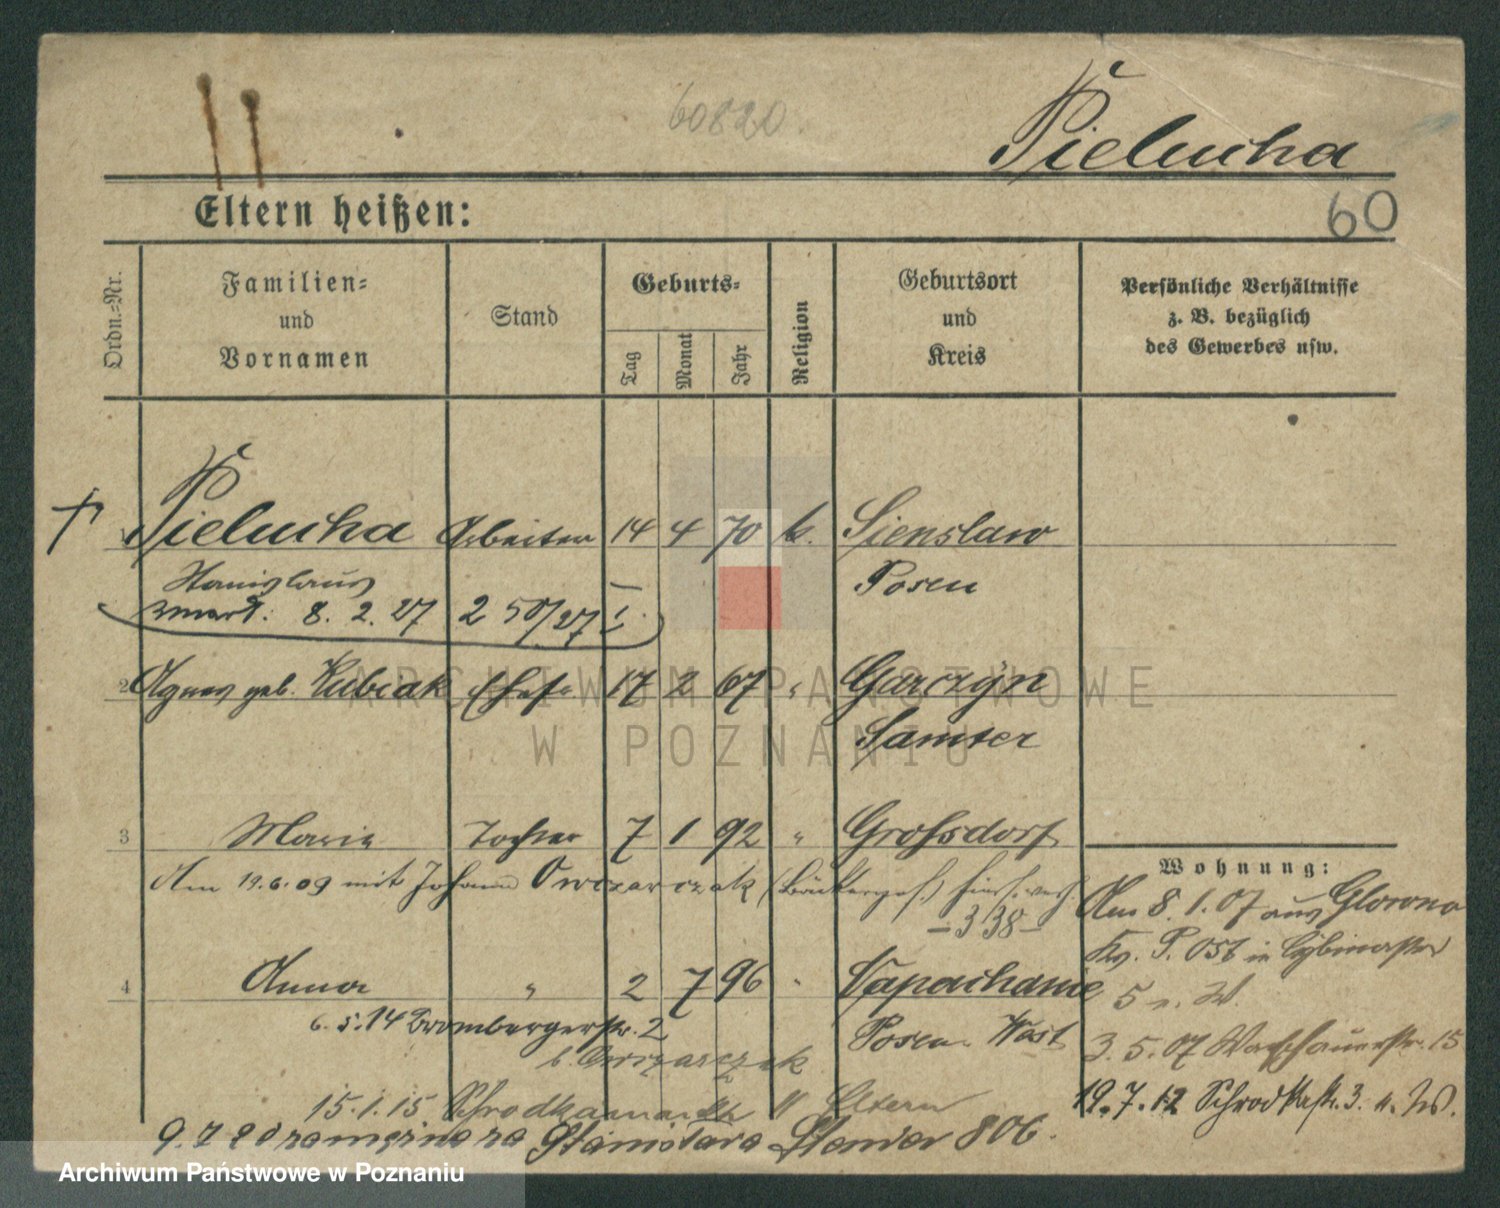 60820
Pielucha
60
Eltern heißen:
Ordn.-Nr.
Familien- und Vornamen
Stand
Geburts-
Tag
Monat
Jahr
Religion
Geburtsort und Kreis
Persönliche Verhältnisse z. B. bezüglich des Gewerbes usw.
Pielucha Arbeiter 14 4 70 k. Sienslaw
Stanislaus Posen
zmarł: 8. 2. 27 2 50/27 I
2 Agnes geb. Kubiak Ehefr 17 2 67 " Garczyn
Samter
3 Marie Tochter 7 1 92 " Grossdorf
Am 19.6.09 mit Johann Owczarczak
— 338 —
4 Anna " 2 7 96 "
Posen West
6. 5. 14 Brombergerstr. 2
b. Owczarczak
15. 1. 15 Eltern
9. 7 20 zamężna na Stanisława 806.
Wohnung:
Am 8. 1. 07 aus Glowno
Kr. P. Ost in Cybinastr
5 n. W.
3. 5. 07 Warschauerstr. 15
19. 7. 12 Schrodkastr. 3. n. W.
ARCHIWUM PAŃSTWOWE
W POZNANIU
Archiwum Państwowe w Poznaniu